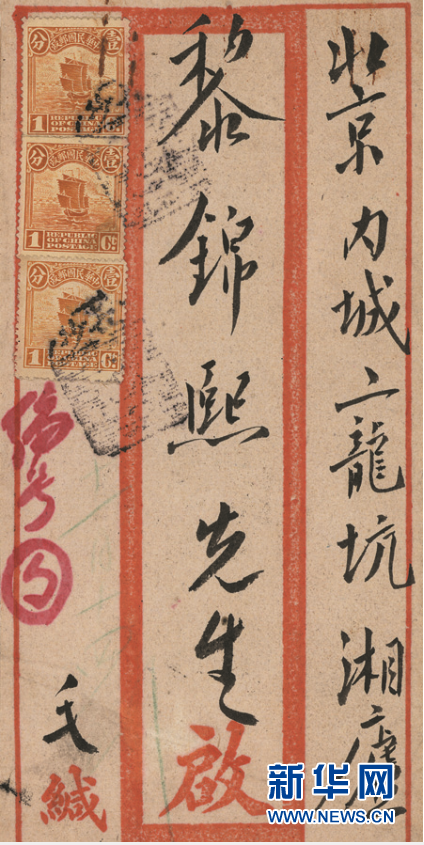 北京内城二龍坑湘
黎錦熙先生啟
中華民國郵政
壹 分
1 REPUBLIC OF CHINA POSTAGE
中華民國郵政
壹 分
1 REPUBLIC OF CHINA POSTAGE
中華民國郵政
壹 分
1 REPUBLIC OF CHINA POSTAGE
编号
毛緘
新华网
WWW.NEWS.CN